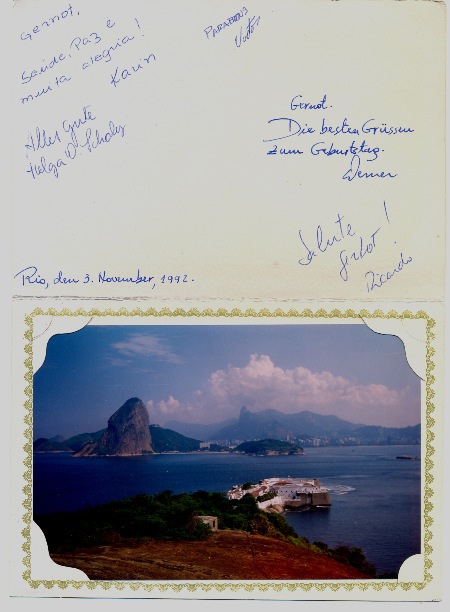 Gernot,
Saúde, Paz e
muita alegria!
Karin
PARABENS
Victor
Alles Gute
Helga V. Scholz
Gernot.
Die besten Grüssen
zum Geburtstag.
Werner
Salute!
Gernot.
Ricardo
Rio, den 3. November, 1992.